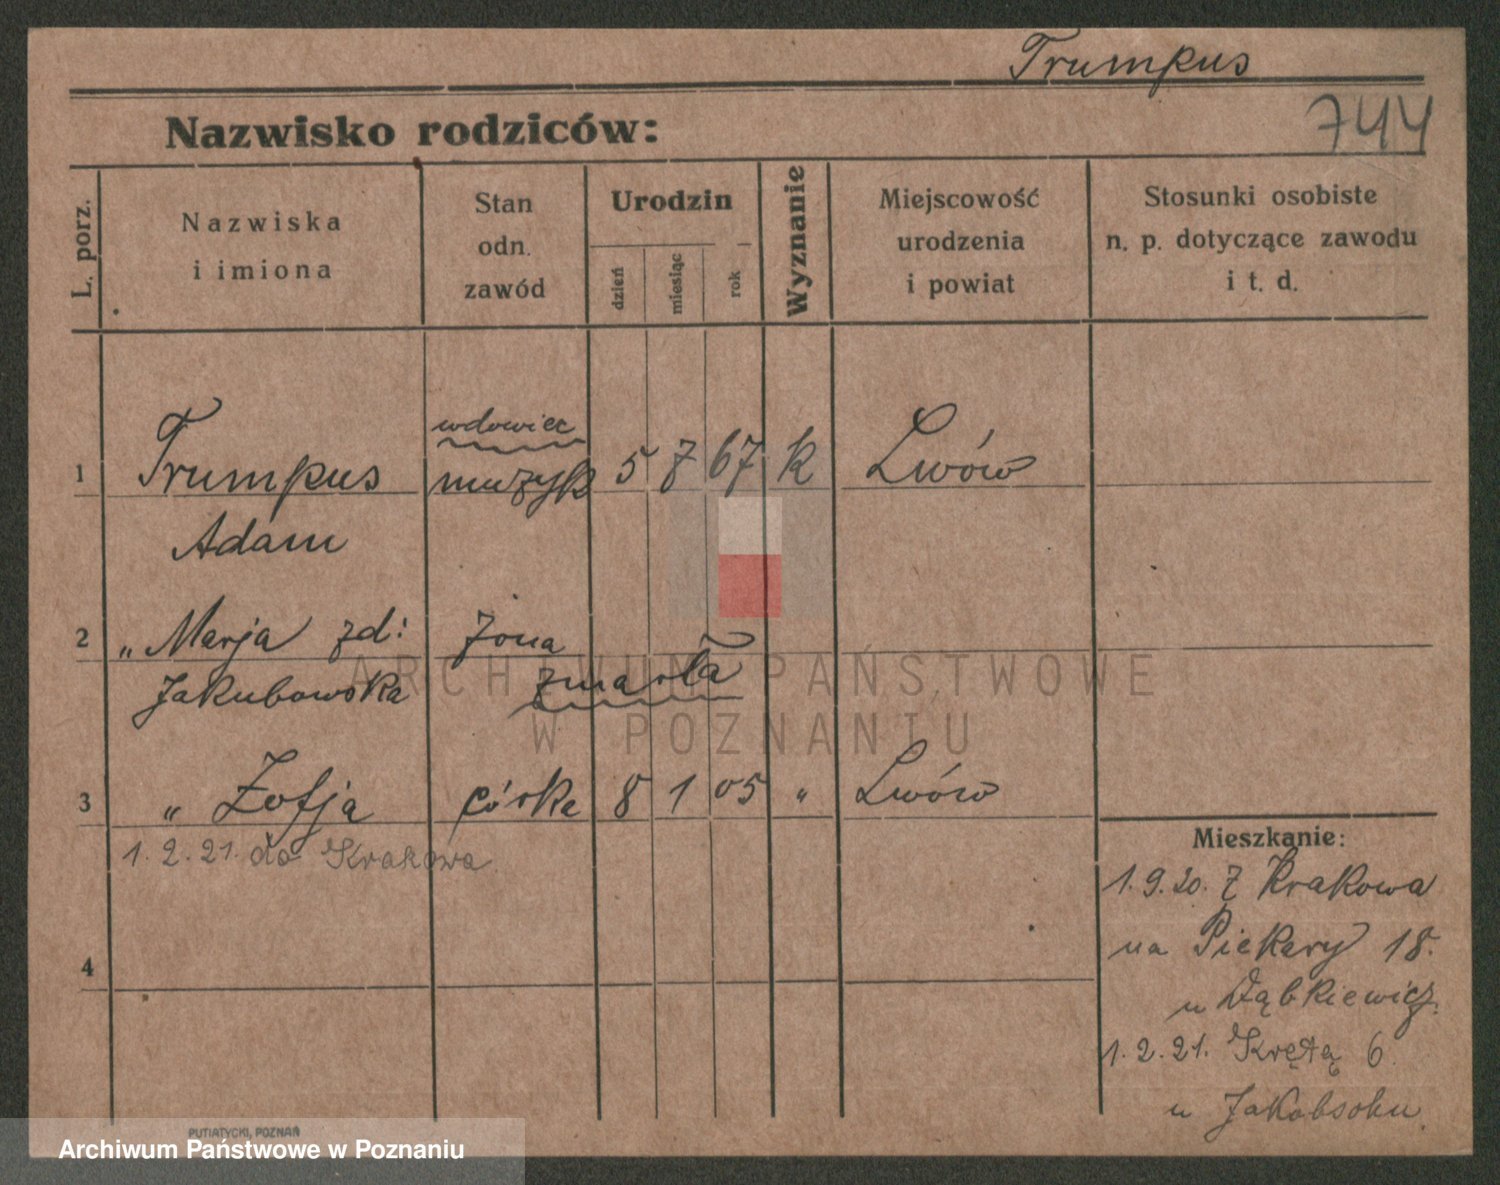 Trumpus
744
Nazwisko rodziców:
L. porz.
Nazwiska
i imiona
Stan
odn.
zawód
Urodzin
dzień
miesiąc
rok
Wyznanie
Miejscowość
urodzenia
i powiat
Stosunki osobiste
n. p. dotyczące zawodu
i t. d.
wdowiec
1 Trumpus muzyk 5 7 67 k Lwów
Adam
2 „ Marja zd: żona
Jakubowska zmarła
ARCHIWUM PAŃSTWOWE
W POZNANIU
3 „ Zofja córka 8 1 05 „ Lwów
1.2.21. do Krakowa.
4
Mieszkanie:
1.9.20. z Krakowa
na Piekary 18.
u Dąbkiewicz.
1.2.21. Krętą 6.
u Jakobsohn.
PUTIATYCKI, POZNAŃ
Archiwum Państwowe w Poznaniu